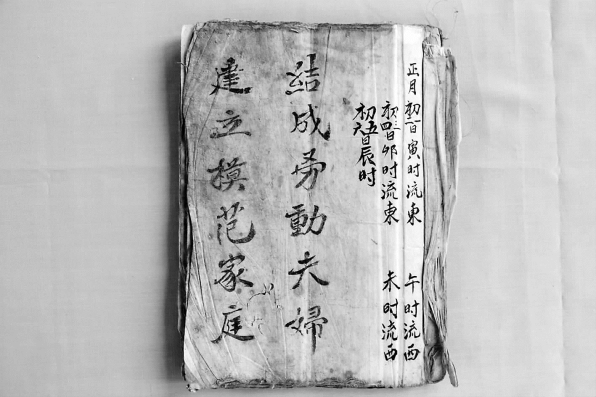 正月初一二日寅时流東 午时流西
初三四日卯时流東 未时流西
初五六日辰时
結成劳動夫婦
建立模范家庭